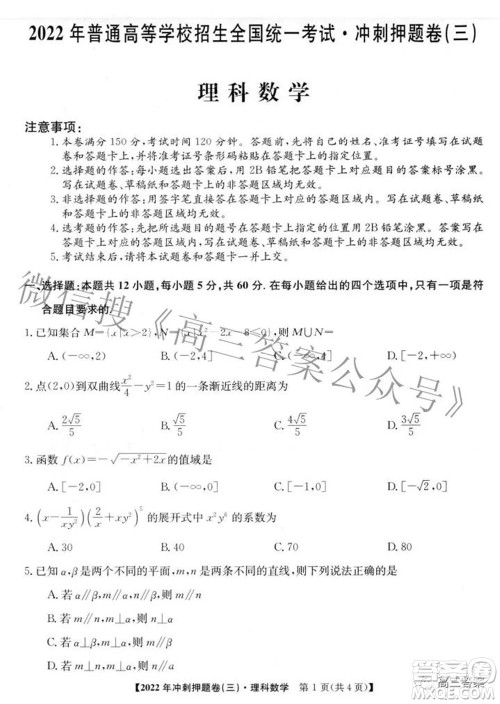 2022年普通高等学校招生全国统一考试·冲刺押题卷(三)
理科数学
注意事项:
1.本卷满分150分,考试时间120分钟。答题前,先将自己的姓名、准考证号填写在试题
卷和答题卡上,并将准考证号条形码粘贴在答题卡上的指定位置。
2.选择题的作答:每小题选出答案后,用2B铅笔把答题卡上对应题目的答案标号涂黑。
写在试题卷、草稿纸和答题卡上的非答题区域均无效。
3.非选择题的作答:用签字笔直接写在答题卡上对应的答题区域内。写在试题卷、草稿纸
和答题卡上的非答题区域均无效。
4.选考题的作答:先把所选题目的题号在答题卡上指定的位置用2B铅笔涂黑。答案写在
答题卡上对应的答题区域内,写在试题卷、草稿纸和答题卡上的非答题区域均无效。
5.考试结束后,请将本试题卷和答题卡一并上交。
一、选择题:本题共12小题,每小题5分,共60分.在每小题给出的四个选项中,只有一项是符
合题目要求的.
1.已知集合M={x|x>2},N={x|x²-2x-8≤0},则M∪N=
A.(-∞,2) B.[-2,+∞) C.(-∞,4] D.(2,4]
2.点(2,0)到双曲线x²/4-y²=1的一条渐近线的距离为
A.2√5/5 B.√5/5 C.4√5/5 D.3√5/5
3.函数f(x)=-√(-x²+2x)的值域为
A.[-2,0] B.[0,+∞) C.(-∞,0] D.[-1,0]
4.(x-1/(xy²))(2/x+xy²)⁵的展开式中x²y⁶的系数为
A.30 B.40 C.70 D.80
5.已知α,β是两个不同的平面,m,n是两条不同的直线,则下列说法正确的是
A.若α∥β,m∥α,n∥β,则m∥n
B.若α⊥β,m⊥α,则m∥β
C.若α∥β,m⊥α,n∥β,则m⊥n
D.若m⊥n,m⊥α,则n∥α
【2022年冲刺押题卷(三)·理科数学 第1页(共4页)】
微信搜《高三答案公众号》
高三答案